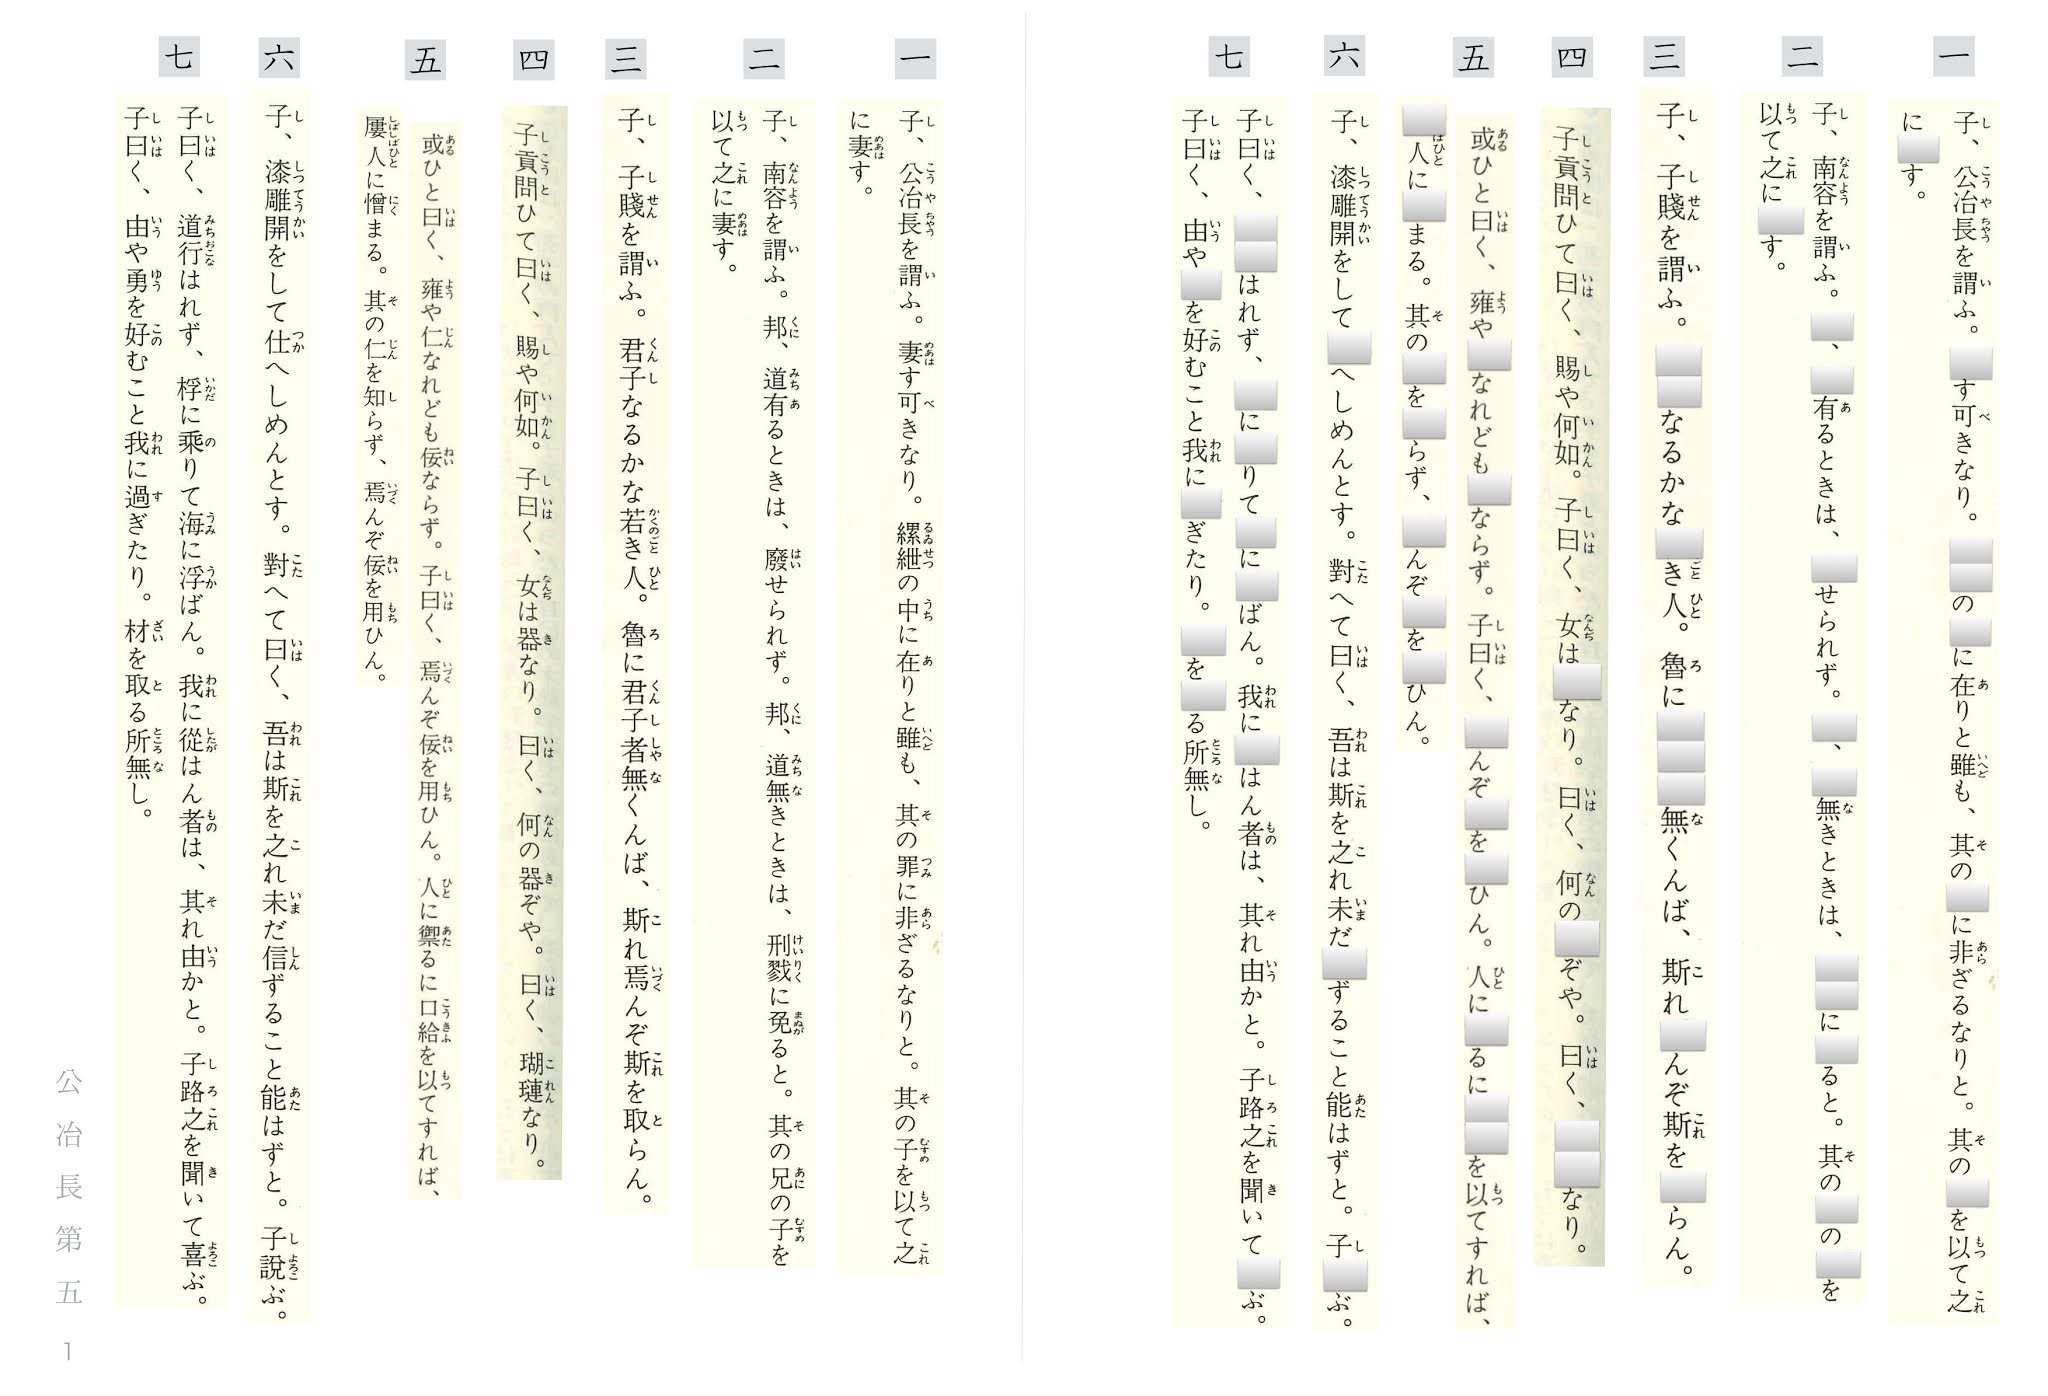 一
子、公冶長を謂ふ。 す可きなり。 の に在りと雖も、其の に非ざるなりと。其の を以て之
に す。
二
子、南容を謂ふ。 、 有るときは、 せられず。 、 無きときは、 に ると。其の の を
以て之に す。
三
子、子賤を謂ふ。 なるかな き人。魯に 無くんば、斯れ んぞ斯を らん。
四
子貢問ひて曰く、賜や何如。子曰く、女は なり。曰く、何の ぞや。曰く、 なり。
五
或ひと曰く、雍や なれども ならず。子曰く、 んぞ を ひん。人に るに を以てすれば、
人に まる。其の を らず、 んぞ を ひん。
六
子、漆雕開をして へしめんとす。對へて曰く、吾は斯を之れ未だ ずること能はずと。子 ぶ。
七
子曰く、 はれず、 に りて に ばん。我に はん者は、其れ由かと。子路之を聞いて ぶ。
子曰く、由や を好むこと我に ぎたり。 を る所無し。
一
子、公冶長を謂ふ。妻す可きなり。縲紲の中に在りと雖も、其の罪に非ざるなりと。其の子を以て之
に妻す。
二
子、南容を謂ふ。邦、道有るときは、廢せられず。邦、道無きときは、刑戮に免ると。其の兄の子を
以て之に妻す。
三
子、子賤を謂ふ。君子なるかな若き人。魯に君子者無くんば、斯れ焉んぞ斯を取らん。
四
子貢問ひて曰く、賜や何如。子曰く、女は器なり。曰く、何の器ぞや。曰く、瑚璉なり。
五
或ひと曰く、雍や仁なれども佞ならず。子曰く、焉んぞ佞を用ひん。人に禦るに口給を以てすれば、
屢人に憎まる。其の仁を知らず、焉んぞ佞を用ひん。
六
子、漆雕開をして仕へしめんとす。對へて曰く、吾は斯を之れ未だ信ずること能はずと。子說ぶ。
七
子曰く、道行はれず、桴に乘りて海に浮ばん。我に從はん者は、其れ由かと。子路之を聞いて喜ぶ。
子曰く、由や勇を好むこと我に過ぎたり。材を取る所無し。
公冶長第五 1